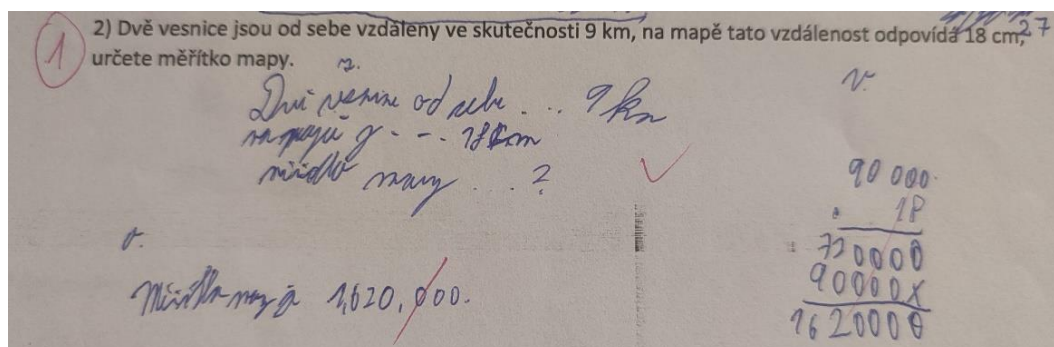 2) Dvě vesnice jsou od sebe vzdáleny ve skutečnosti 9 km, na mapě tato vzdálenost odpovídá 18 cm, 27
1 určete měřítko mapy.
z. v.
Dvě vesnice od sebe . . . 9 km
na mapě - - . 18 cm
měřítko mapy . . . ?
90 000
. 18
720000
90000X
1620000
o.
Měřítko mapy je 1,620,000.